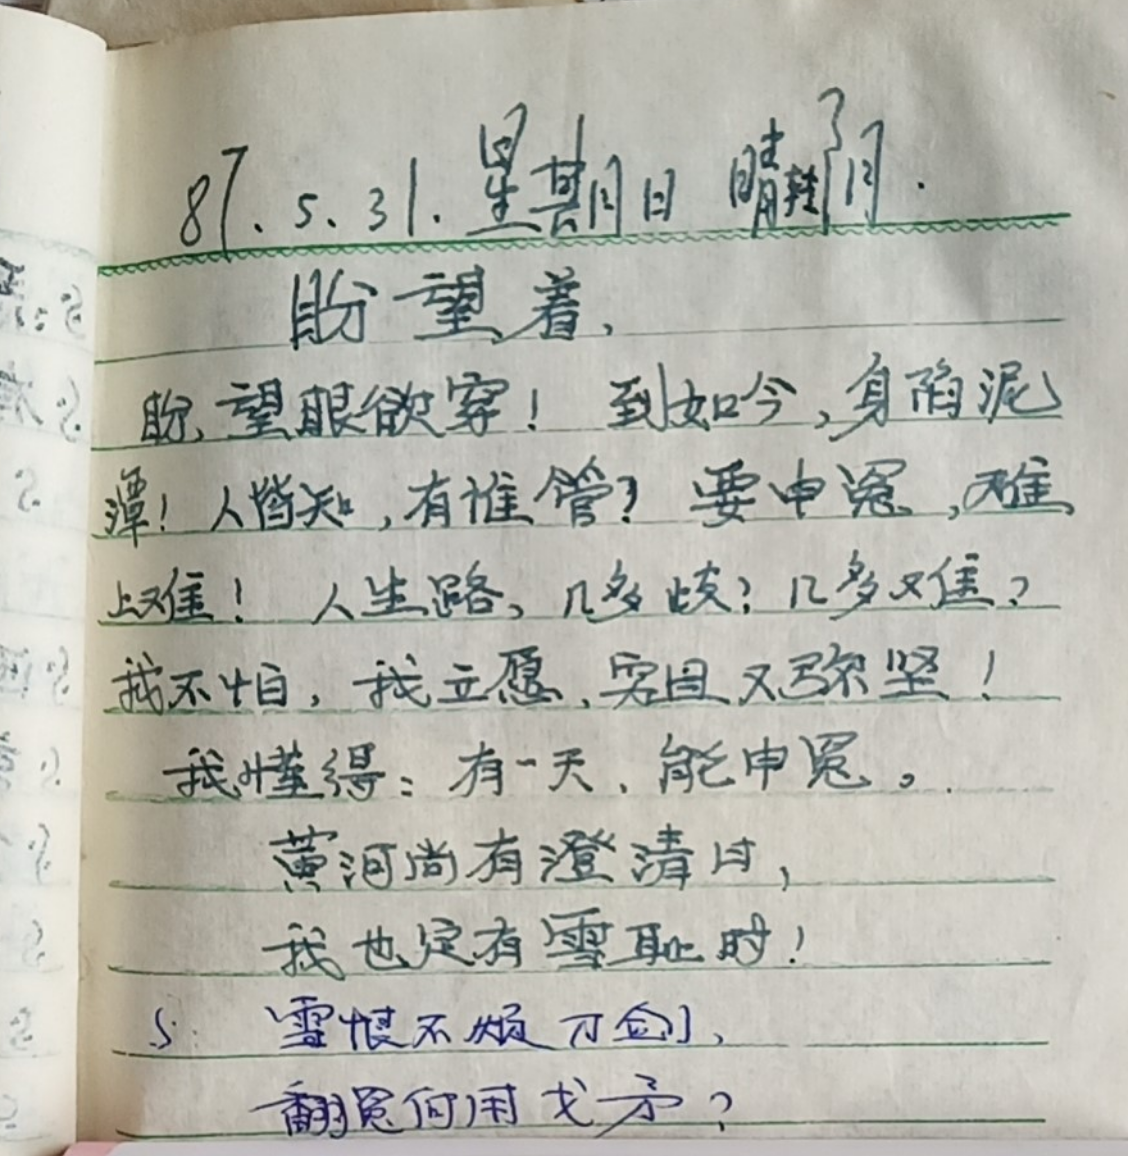 87.5.31.星期日 晴转阴.
盼望着,
盼望眼欲穿! 到如今,身陷泥
潭!人皆知,有谁管?要申冤,难
上难! 人生路,几多歧?几多难?
我不怕,我立愿,穷且又弥坚!
我懂得:有一天,能申冤。
黄河尚有澄清日,
我也定有雪耻时!
S: 雪恨不烦刀剑,
翻冤何用戈矛?